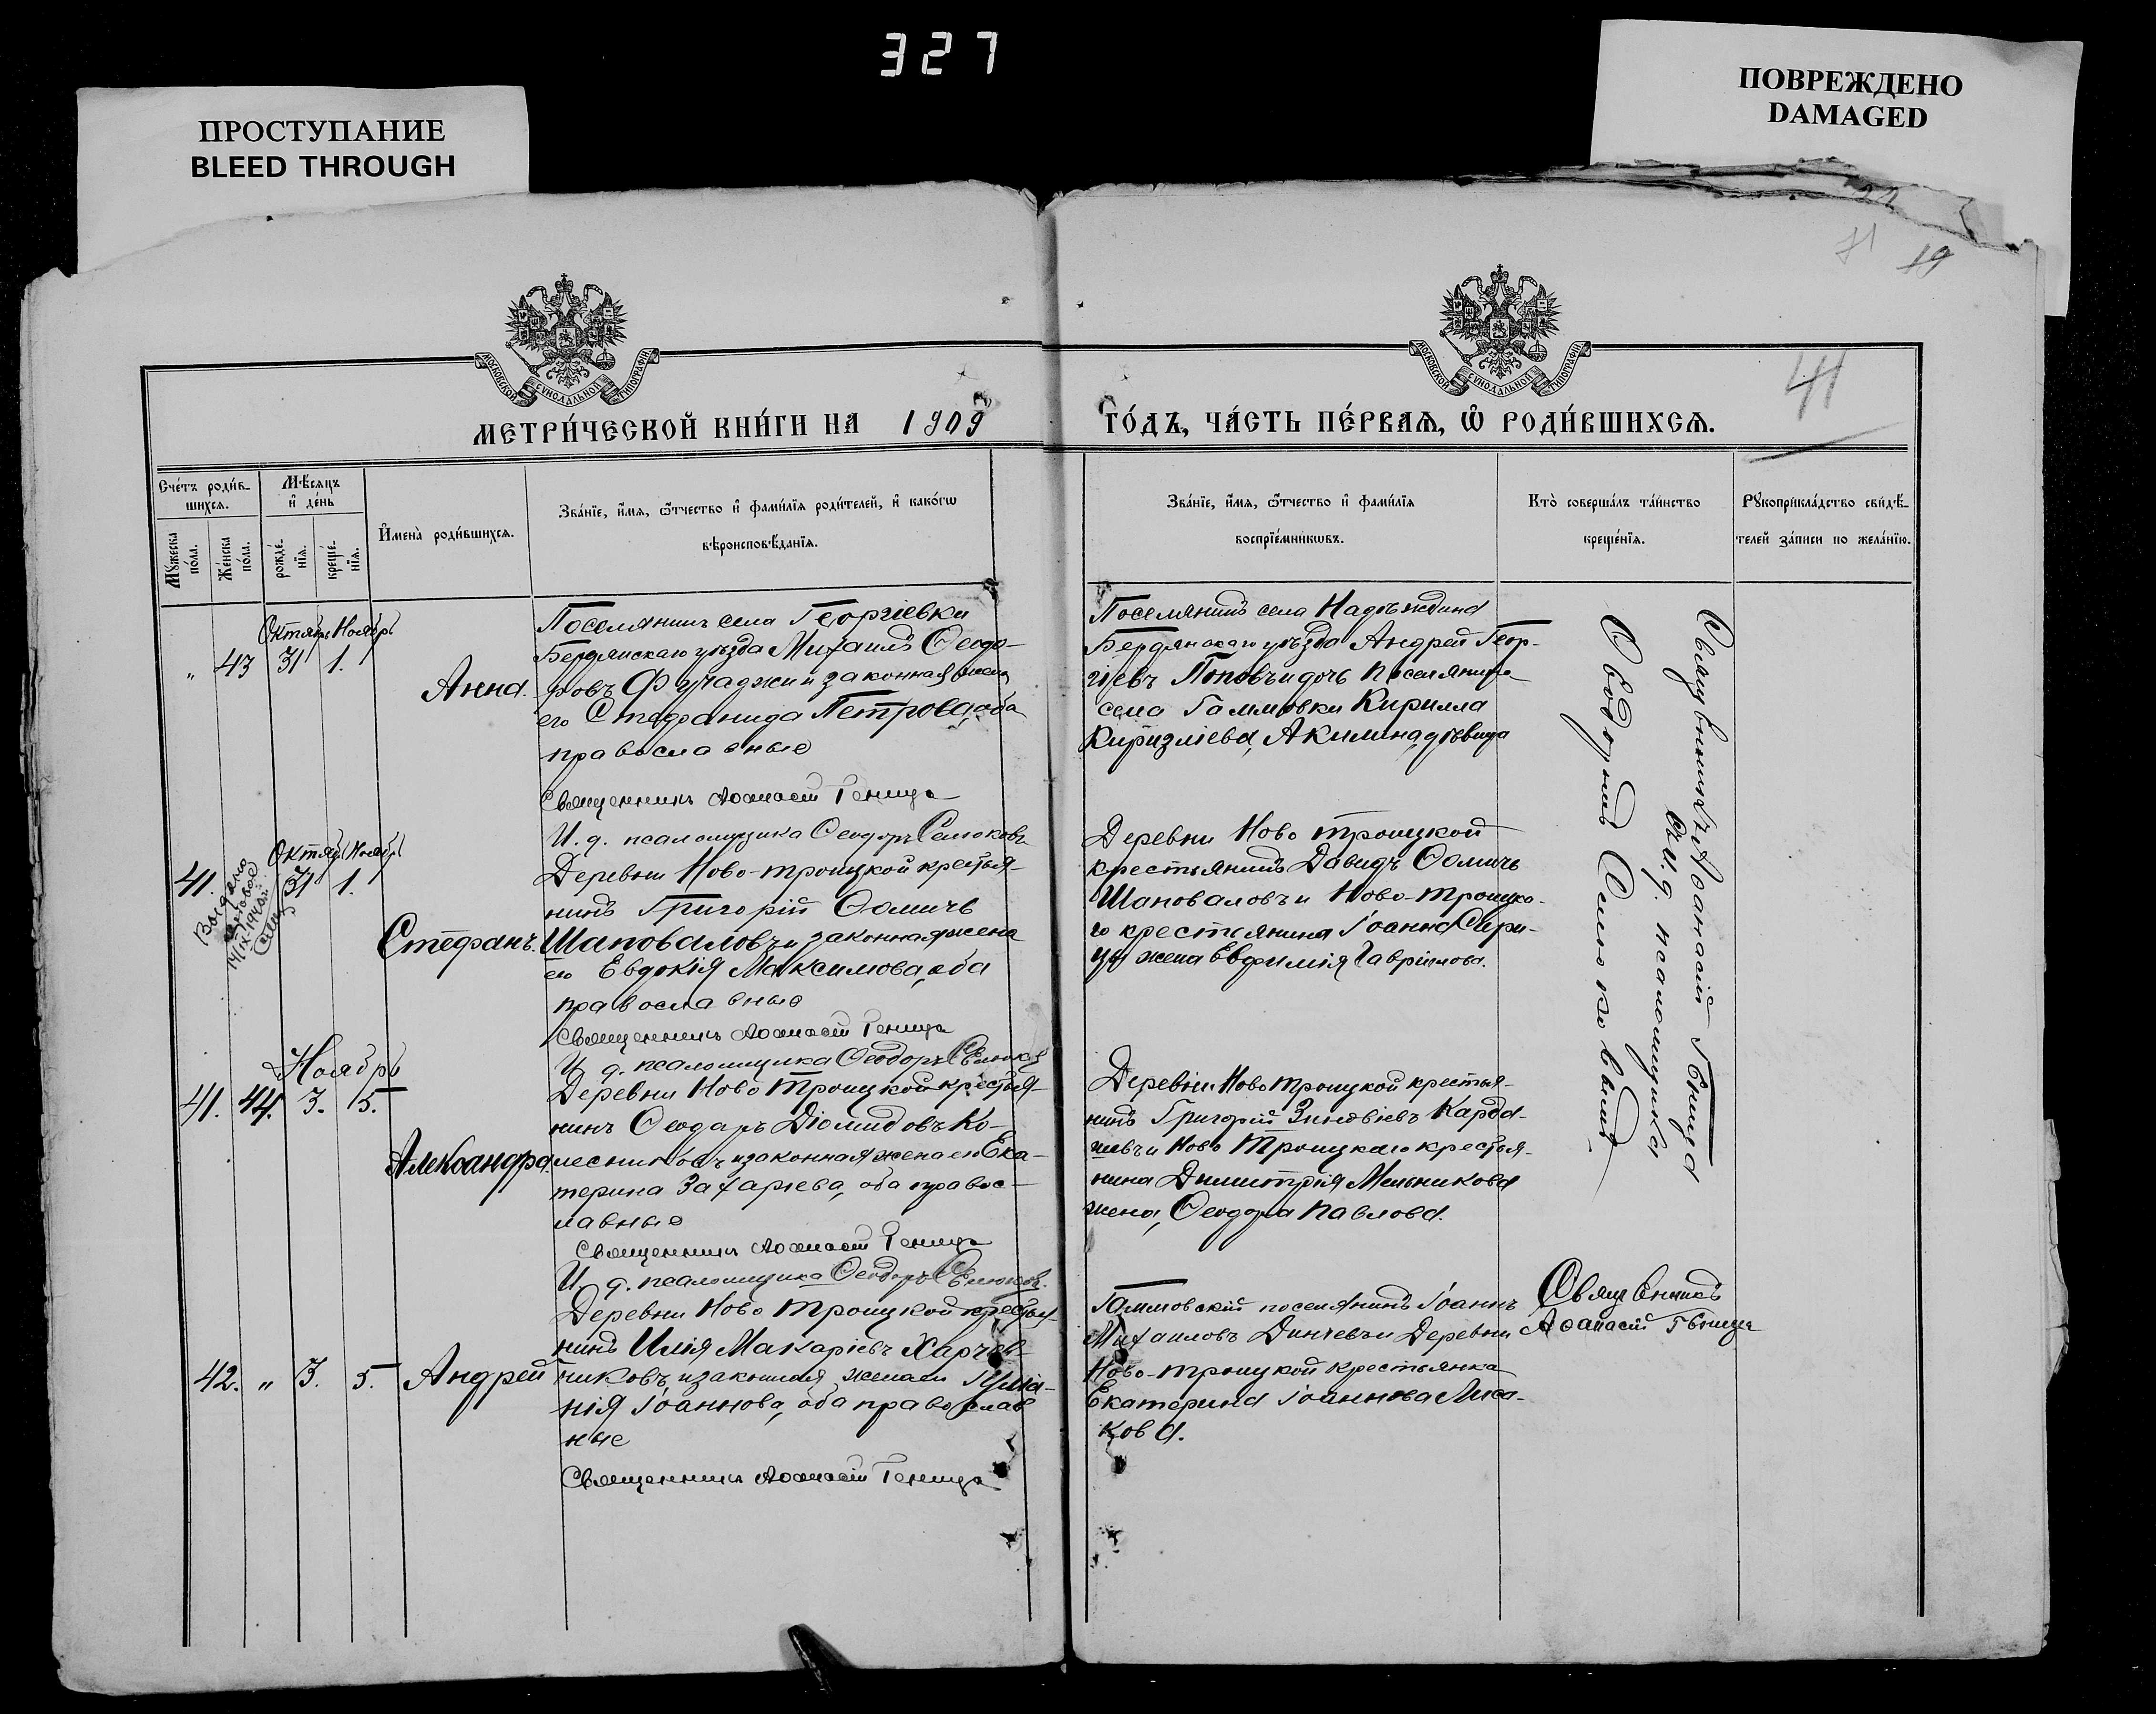 327
ПРОСТУПАНИЕ
BLEED THROUGH
ПОВРЕЖДЕНО
DAMAGED
71 19
41
МОСКОВСКОЙ СѴНОДАЛЬНОЙ ТИПОГРАФІИ
МОСКОВСКОЙ СѴНОДАЛЬНОЙ ТИПОГРАФІИ
МЕТРИ́ЧЕСКОЙ КНИ́ГИ НА 1909
ГО́ДЪ, ЧА́СТЬ ПЕ́РВАЯ, Ѡ РОДИ́ВШИХСЯ.
Сче́тъ роди́в-
шихся.
Мꙋ́жеска по́ла.
Же́нска по́ла.
Мѣ́сяцъ
и҆ де́нь
рожде́-
нїя.
креще́-
нїя.
И҆мена̀ роди́вшихся.
Зва́нїе, и҆́мя, ѻ҆́тчество и҆ фами́лїя роди́телей, и҆ како́гѡ
вѣроисповѣ́данїя.
Зва́нїе, и҆́мя, ѻ҆́тчество и҆ фами́лїя
воспрїе́мникѡвъ.
Кто̀ соверша́лъ та́инство
креще́нїя.
Рꙋкоприкла́дство свидѣ́-
телей за́писи по жела́нїю.
Октябрь Ноябрь
" 43 31 1.
Анна.
Поселянинъ села Георгіевки
Бердянскаго уѣзда Михаилъ Ѳеодо-
ровъ Фучаджи и законная жена
его Стефанида Петрова, оба
православные
Священникъ Аѳанасій Геница
И. д. псаломщика Ѳеодоръ Селюковъ
Поселянинъ села Надеждина
Бердянскаго уѣзда Андрей Геор-
гіевъ Поповъ и дочь поселянина
села Гаммовки Кирилла
Киризліева, Акилина дѣвица
Октябрь Ноябрь
41. 31 1.
Выдано
14/IX-1940г.
Стефанъ.
Деревни Ново-троицкой крестья-
нинъ Григорій Ѳомичъ
Шаповаловъ и законная жена
его Евдокія Максимова, оба
православные
Священникъ Аѳанасій Геница
И. д. псаломщика Ѳеодоръ Селюковъ
Деревни Ново троицкой
крестьянинъ Давидъ Ѳомичъ
Шаповаловъ и Ново-троицка-
го крестьянина Іоанна
жена Евфимія Гавріилова.
Ноябрь
41. 44. 3. 5.
Александра
Деревни Ново Троицкой крестья-
нинъ Ѳеодоръ Діомидовъ Ко-
лесниковъ и законная жена его Ека-
терина Захаріева, оба правос-
лавные
Священникъ Аѳанасій Геница
И. д. псаломщика Ѳеодоръ Селюковъ.
Деревни Ново троицкой крестья-
нинъ Григорій Зиновіевъ Карда-
шевъ и Ново Троицкаго крестья-
нина Димитрія Мельникова
жена, Ѳеодора Павлова.
42. " 3. 5.
Андрей
Деревни Ново троицкой крестья-
нинъ Илія Макаріевъ Харчев-
никовъ и законная жена его
Іоаннова, оба православ
ные
Священникъ Аѳанасій Геница
Гаммовскій поселянинъ Іоаннъ
Михаиловъ Динчевъ и Деревни
Ново-троицкой крестьянка
Екатерина Іоаннова Лиса-
кова.
Священникъ Аѳанасій Геница
Съ И. д. псаломщика
Ѳеодоромъ Селюковымъ
Священникъ
Аѳанасій Геница